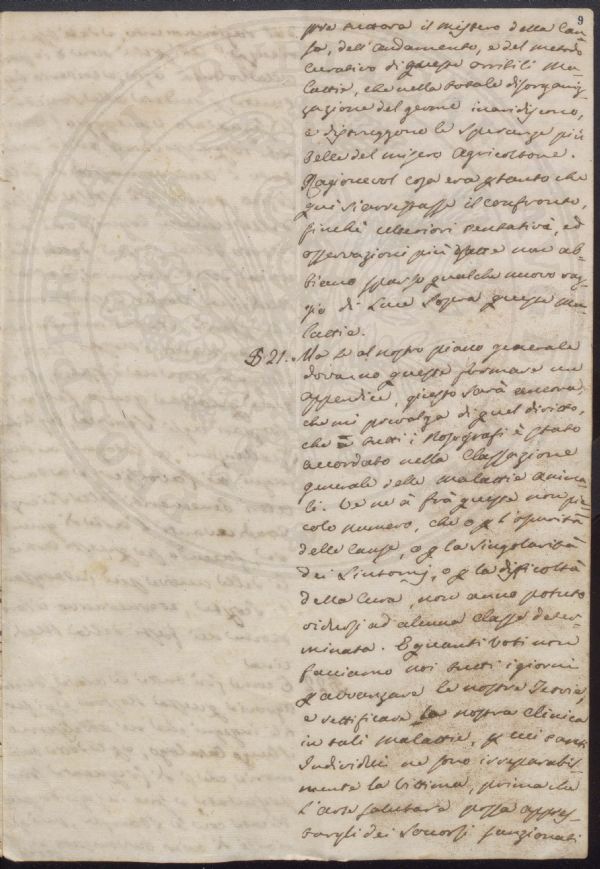 9
pre tuttora il mistero della Cau-
sa, dell'andamento, e del metodo
curativo di queste orribili Ma-
lattie, che nella totale disorganiz-
zazione del germe inaridiscono,
e distruggono le speranze più
belle del misero Agricoltore.
Ragionevol cosa era ptanto che
quì si arrestasse il confronto,
finchè ulteriori tentativi, ed
osservazioni più esatte non ab-
biano sparso qualche nuovo rag-
gio di Luce sopra queste ma-
lattie.
§ 21. Ma se al nostro piano generale
dovranno queste formare un
appendice, questo sarà ancora,
che mi prevalga di quel diritto,
che a tutti i Nosografi è stato
accordato nella Classazione
generale delle malattie anima-
li. Ve ne à frà queste non pic-
colo numero, che o p l'oscurità
delle cause, o p la singolarità
dei Sintomi, o p la difficoltà
della Cura, non anno potuto
ridursi ad alcuna classe deter-
minata. E quanti voti non
facciamo noi tutti i giorni
p avvanzare la nostra Teoria,
e rettificare la nostra Clinica
in tali malattie, p cui tanti
Individui ne sono irreparabil-
mente la vittima, prima che
l'arte salutare possa appres-
targli dei soccorsi sanzionati